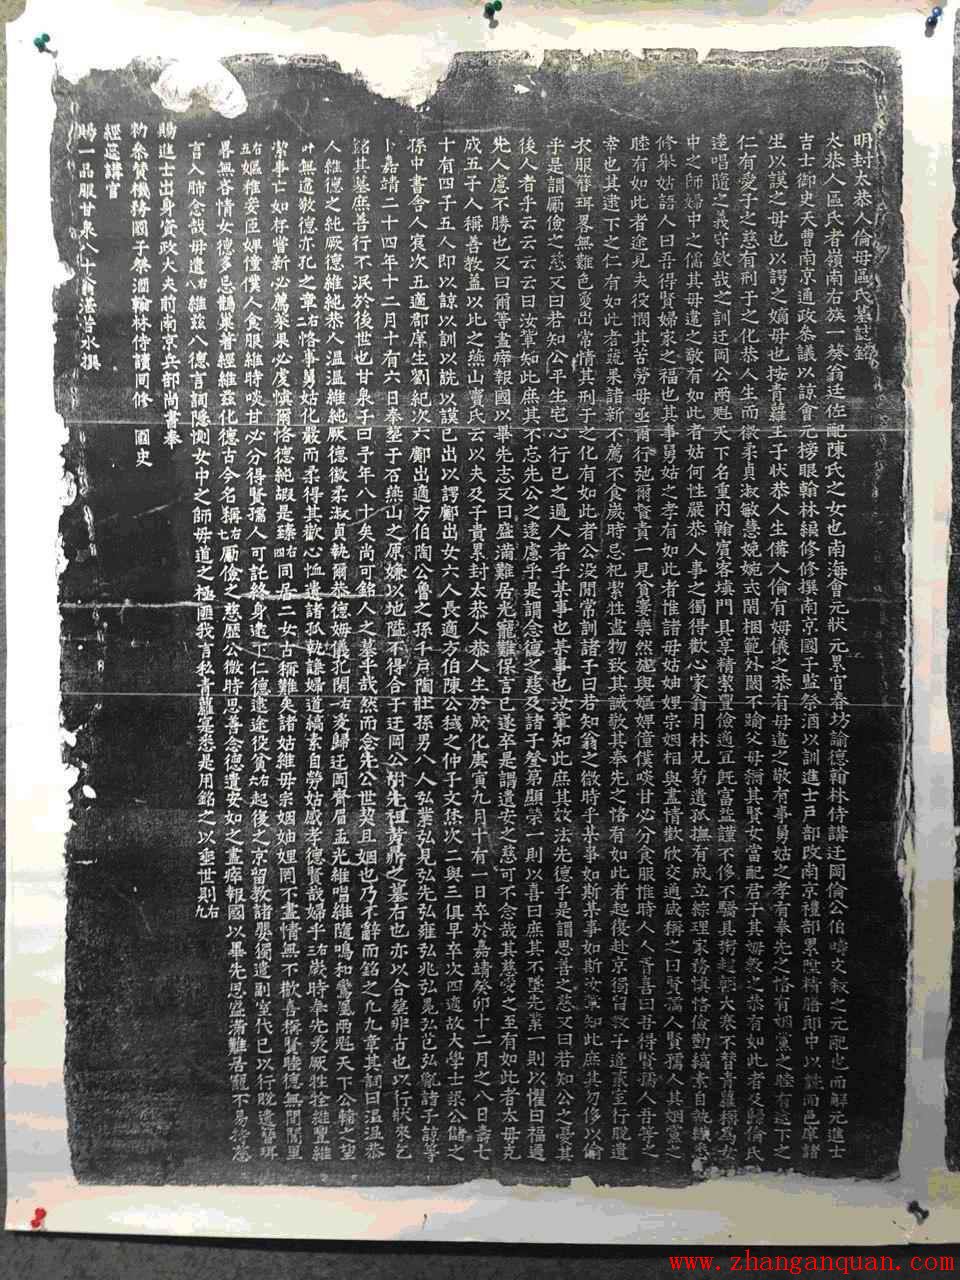 明封太恭人倫母區氏墓誌銘
太恭人區氏者嶺南右族一葵翁廷佐配陳氏之女也南海會元狀元累官春坊諭德翰林侍講迂岡倫公伯疇文敘之元配也而解元進士
吉士御史天曹南京通政參議以諒會元榜眼翰林編修修撰南京國子監祭酒以訓進士戶部改南京禮部累陞精膳郎中以詵而邑庠諸
生以謨之母也以諤之嫡母也按青蘿王子狀恭人生僃人倫有姆儀之恭有母遣之敬有事舅姑之孝有奉先之恪有姻黨之睦有逮下之
仁有愛子之慈有刑于之化恭人生而徽柔貞淑敏慧婉婉式閑梱範外閾不踰父母謂其賢女當配君子其姆教之恭有如此者及歸倫氏
逵唱隨之義守欽哉之訓迂岡公兩魁天下名重內翰賓客填門具享精潔豐儉適宜既富益謹不侈不驕
中之師婦中之儒其母遣之敬有如此者姑何性嚴恭人事之獨得歡心家翁月林兄弟遺孤撫有成立綜理家務慎恪儉勤縞素自執
修舉姑語人曰吾得賢婦婦家之福也其事舅姑之孝有如此者惟諸母姑妯娌宗姻相與盡情歡欣交通咸稱之曰賢孺人賢孺人其姻黨之
睦有如此者途見夫役憫其苦勞毋亟爾行弛爾暫責一見貧寠樂然施與嫗婢僮僕啖甘必分食服惟時人人香喜曰吾得賢孺人吾等之
幸也其逮下之仁有如此者蔬果諸新不薦不食歲時忌祀絜牲盡物致其誠敬其奉先之恪有如此者起後赴京獨留教子遣副室行脫遺
衣服簪珥畧無難色夐出常情其刑于之化有如此者公沒閒常訓諸子曰若知翁之微時乎某事如斯某事如斯汝輩知此庶其勿侈以偷
乎是謂勵儉之慈又曰若知公平生宅心行己之過人者乎某事也某事也汝輩知此庶其效法先德乎是謂思善之慈又曰若知公之憂其
後人者乎云云云曰汝輩知此庶其不忘先公之逮慮乎是謂念德之慈及諸子登第顯榮一則以喜曰庶其不墜先業一則以懼曰福過
先人慮不勝也又曰爾等盡瘁報國以畢先志又曰盛滿難居光寵難保言已遂卒是謂遺安之慈可不念哉其慈愛之至有如此者太母克
成五子人稱善教蓋以此之燕山竇氏云以夫及子貴累封太恭人恭人生於成化庚寅九月十有一日卒於嘉靖癸卯十二月之八日壽七
十有四子五人即以諒以訓以詵以謨已出以諤鄺出女六人長適方伯陳公錢之仲子文孫次二與三俱早卒次四適故大學士梁公儲之
孫中書舍人宸次五適郡庠生劉紀次六鄺出適方伯陶公魯之孫千戶陶柱孫男八人弘業弘見弘先弘雍弘兆弘晃弘
卜嘉靖二十四年十二月十有六日奉塟于石燕山之原嫌以地隘不得合于迂岡公附先祖
銘其墓庶善行不泯於後世也甘泉子曰予年八十矣尚可銘人之墓乎哉然而念先公世契且姻也乃不辭而銘之凡九章其詞曰溫溫恭
人維德之純厥德維純恭人溫溫維純厥德徽柔淑貞執爾恭德姆儀孔閑右一夌歸迂岡齊眉孟光維唱維隨鳴和鸞鏘兩魁天下公輔之望
叶無遣敬德亦孔之章右二恪事舅姑化嚴而柔得其歡心恤遺諸孤執誰婦道縞素自勞姑感孝德賢哉婦乎右三歲時奉先爰厥牲拴維豐維
潔事亡如存嘗新必薦蔡果必虔慎爾恪德純嘏是臻右四同居二女古稱難矣諸姑維毋宗姻妯娌罔不盡情無不歡喜撫賢睦德無間閭里
右五嫗稚妾臣婢僮僕人食服維時啖甘必分得賢孺人可託終身逮下仁德遠途役貧右六起後之京留教諸嬰獨遣副室代已以行脫遺簪珥
畧無吝情女德多忌鵲巢著經維茲化德古今名稱右七勵儉之慈歷公微時思善念德遺安如之盡瘁報國以畢先思盛滿難居寵不易持慈
言入肺念哉毋遺右八維茲八德言詞隱惻女中之師母道之極匪我言私青蘿寔悉是用銘之以垂世則右九
賜進士出身資政大夫前南京兵部尚書奉
勑參贊機務國子祭酒翰林侍讀同修　國史
經筵講官
賜一品服甘泉八十翁湛若水撰
www.zhanganquan.com